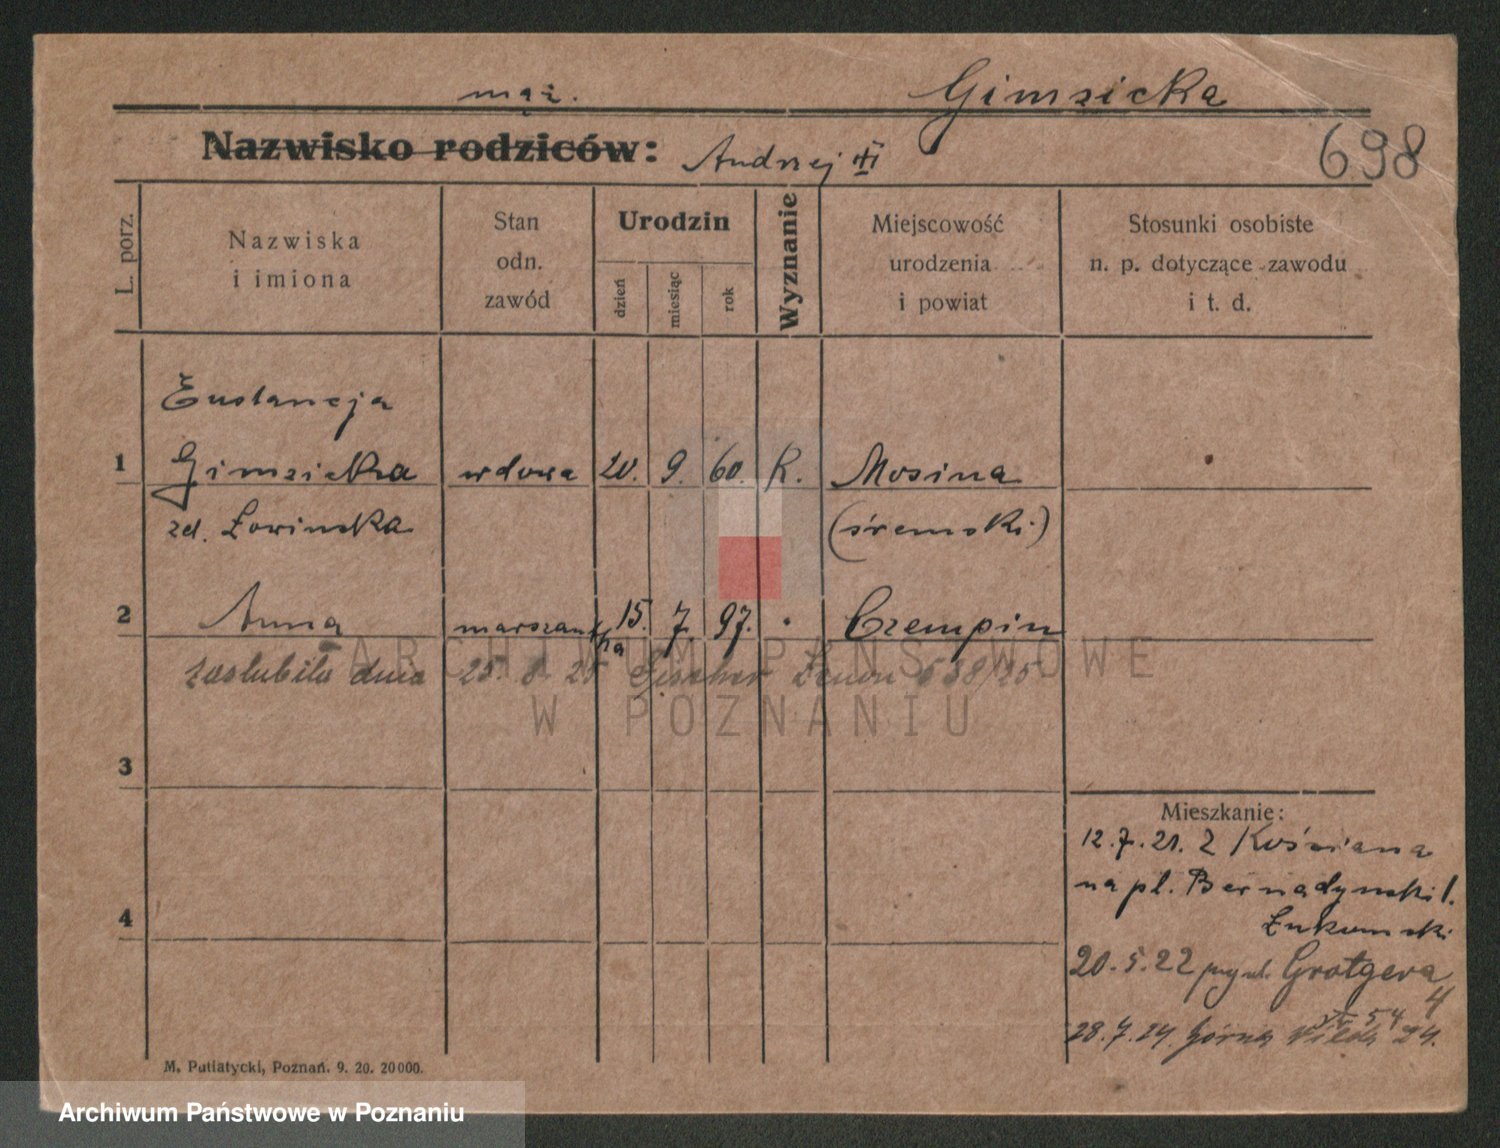 mąż. Gimzicka
Nazwisko rodziców: Andrzej
698
L. porz.
Nazwiska
i imiona
Stan
odn.
zawód
Urodzin
dzień
miesiąc
rok
Wyznanie
Miejscowość
urodzenia
i powiat
Stosunki osobiste
n. p. dotyczące zawodu
i t. d.
Eustancja
1 Gimzicka wdowa 20. 9. 60. K. Mosina
zd. Łowinska (śremski)
2 Anna 15. 7. 97. Czempin
zaslubiła dnia 25. 8. 25 Zenon 638/25
3
4
Mieszkanie:
12.7.21. Z Kościana
na pl. Bernadynski 1.
Łukomski
20.5.22 Grotgera
4
28.7.24. Górna Wilda 24.
54
M. Putiatycki, Poznań. 9. 20. 20000.
ARCHIWUM PAŃSTWOWE
W POZNANIU
Archiwum Państwowe w Poznaniu